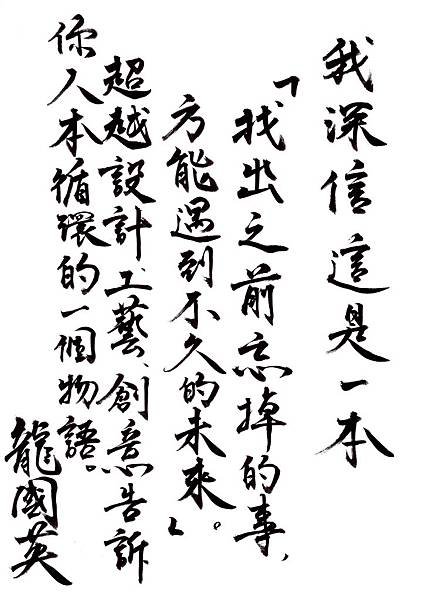 我深信這是一本
「找出之前忘掉的事、
方能遇到不久的未來」。
超越設計、工藝、創意告訴
你人本循環的一個物語。
龍國英